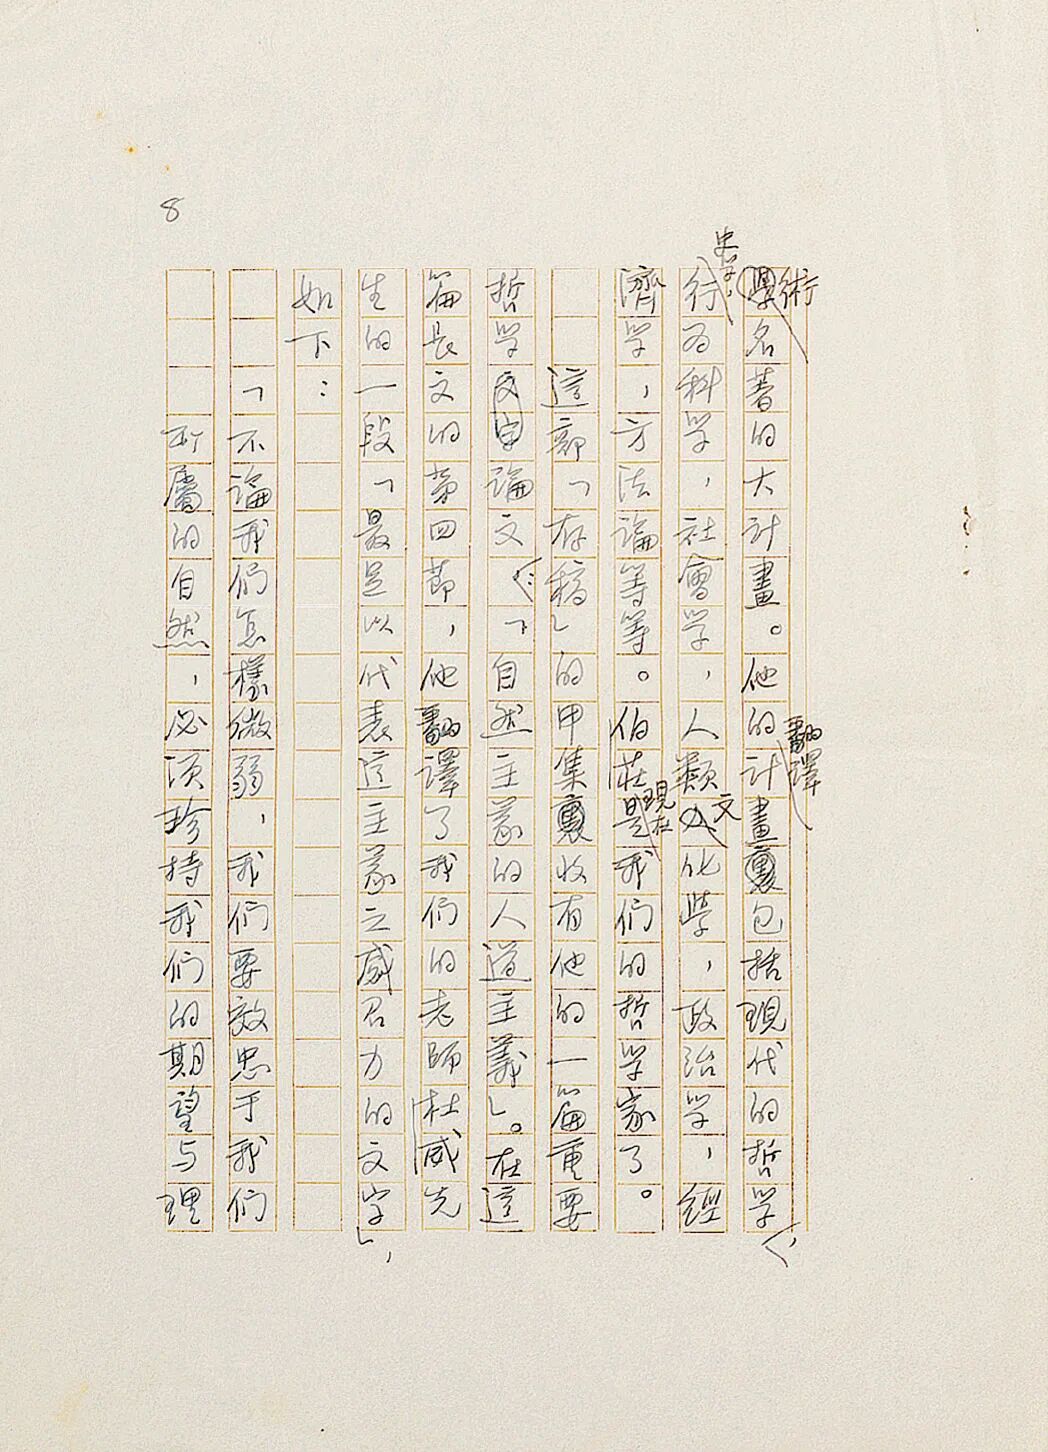 8
學術名著的大計畫。他的翻譯計畫裏包括現代的哲學,
史學,行為科學,社會學,人類文化學,政治學,經
濟學,方法論等等。伯莊現在是我們的哲學家了。
這部「存稿」的甲集裏收有他的一篇重要
哲学文字論文:「自然主義的人道主義」。在這
篇長文的第四節,他翻譯了我們的老師杜威先
生的一段「最足以代表這主義之威召力的文字」,
如下:
「不論我們怎樣微弱,我們要效忠于我們
所屬的自然,必須珍持我們的期望与理